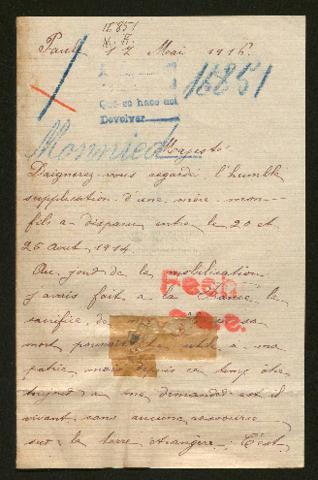 12851
Paul 12 Mai 1916.
16851
Que se hace así
Devolver
Monnied
Majesté
Daignerez-vous regarde l'humble
supplication d'une mère. mon
fils a disparu entre le 20 et
26 aout 1914
Au jour de la mobilisation
j'avais fait a la France le
sacrifice de sa
mort pourrait être utile a ma
patrie mais depuis ce temps être
toujours a me demander est il
vivant sans aucune ressource
sur la terre étrangère. C'est